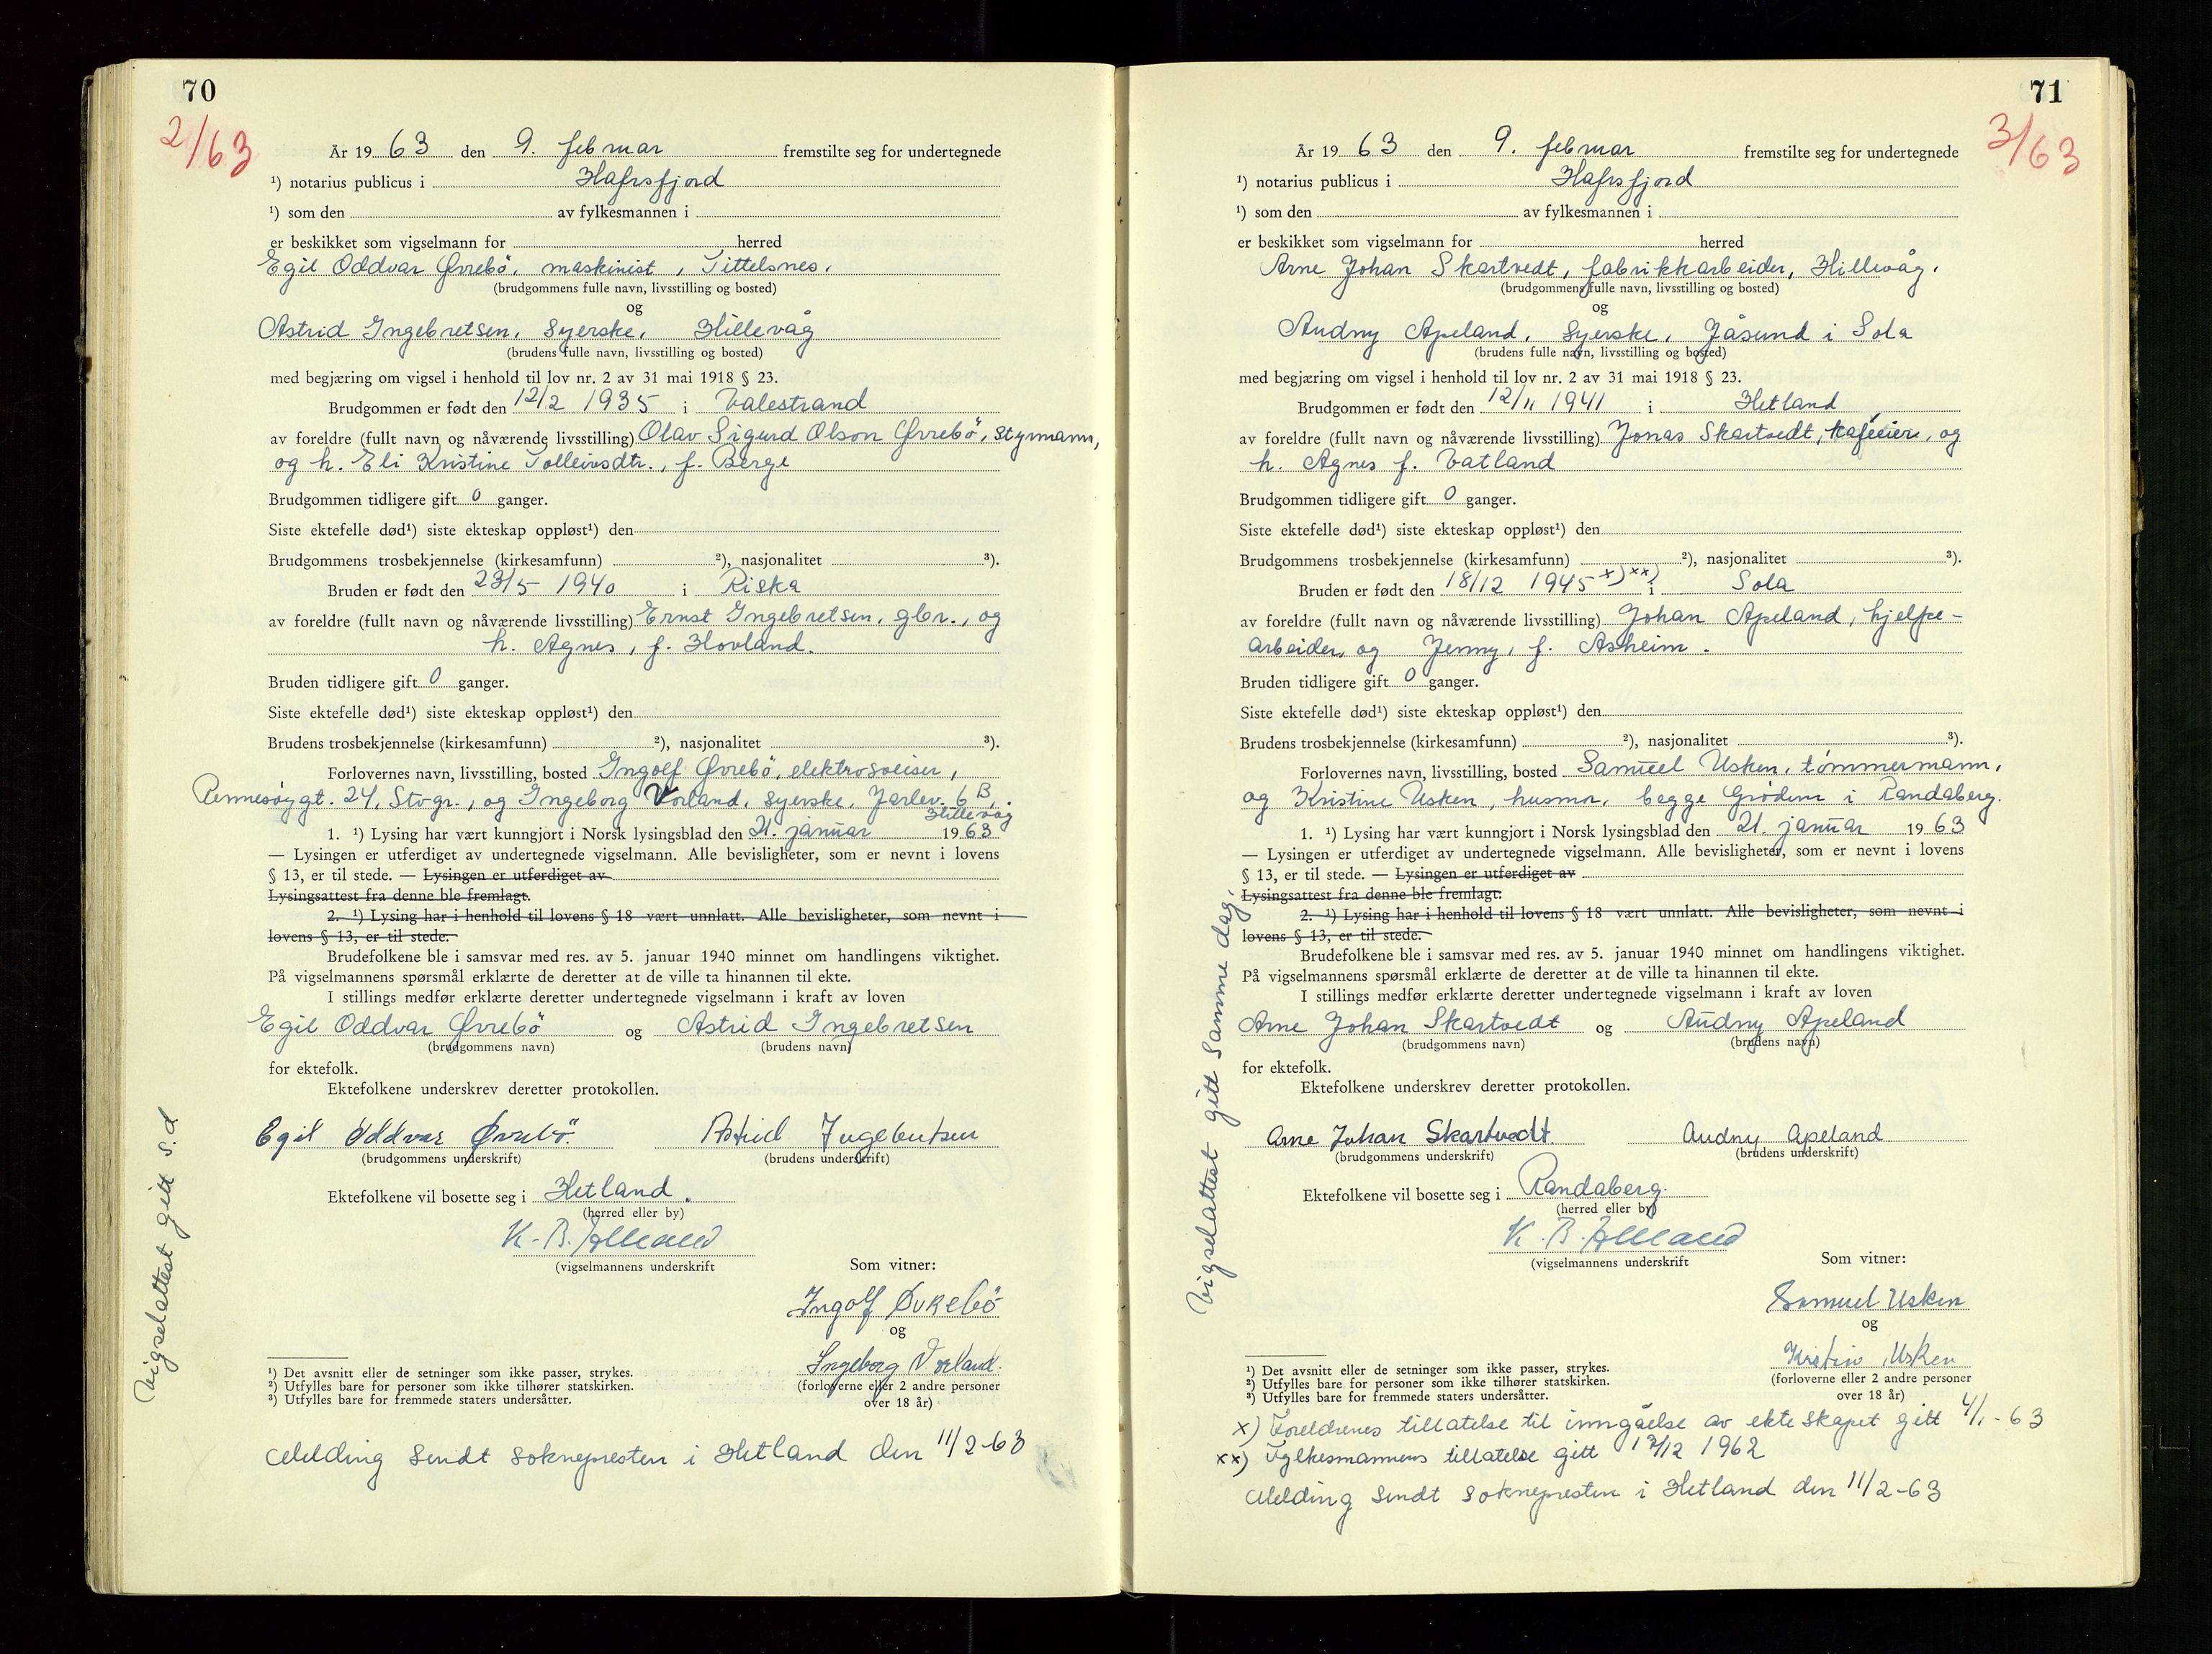 70
2/63
År 19 63 den 9. februar fremstilte seg for undertegnede
¹) notarius publicus i Hafrsfjord
¹) som den av fylkesmannen i
er beskikket som vigselmann for herred
Egil Oddvar Øvrebö, maskinist, Tittelsnes.
(brudgommens fulle navn, livsstilling og bosted)
og
Astrid Ingebretsen, Syerske, Hillevåg
(brudens fulle navn, livsstilling og bosted)
med begjæring om vigsel i henhold til lov nr. 2 av 31 mai 1918 § 23.
Brudgommen er født den 12/2 1935 i Valestrand
av foreldre (fullt navn og nåværende livsstilling) Olav Sigurd Olson Øvrebö, styrmann,
og h. Eli Kristine Tolleivsdtr., f. Berge
Brudgommen tidligere gift 0 ganger.
Siste ektefelle død¹) siste ekteskap oppløst¹) den
Brudgommens trosbekjennelse (kirkesamfunn) ²), nasjonalitet ³).
Bruden er født den 23/5 1940 i Riska
av foreldre (fullt navn og nåværende livsstilling) Ernst Ingebretsen, gbr., og
h. Agnes, f. Hovland.
Bruden tidligere gift 0 ganger.
Siste ektefelle død¹) siste ekteskap oppløst¹) den
Brudens trosbekjennelse (kirkesamfunn) ²), nasjonalitet ³).
Forlovernes navn, livsstilling, bosted Ingolf Øvrebö, elektrosveiser,
Rennesöygt. 24, Stvgr., og Ingeborg Vorland, syerske, Jarlev. 6 B,.
Hillevåg
1. ¹) Lysing har vært kunngjort i Norsk lysingsblad den 21. januar 19 63
— Lysingen er utferdiget av undertegnede vigselmann. Alle bevisligheter, som er nevnt i lovens
§ 13, er til stede. — Lysingen er utferdiget av
Lysingsattest fra denne ble fremlagt.
2. ¹) Lysing har i henhold til lovens § 18 vært unnlatt. Alle bevisligheter, som nevnt i
lovens § 13, er til stede.
Brudefolkene ble i samsvar med res. av 5. januar 1940 minnet om handlingens viktighet.
På vigselmannens spørsmål erklærte de deretter at de ville ta hinannen til ekte.
I stillings medfør erklærte deretter undertegnede vigselmann i kraft av loven
Egil Oddvar Øvrebö og Astrid Ingebretsen
(brudgommens navn) (brudens navn)
for ektefolk.
Ektefolkene underskrev deretter protokollen.
Egil Oddvar Øvrebö. Astrid Ingebretsen
(brudgommens underskrift) (brudens underskrift)
Ektefolkene vil bosette seg i Hetland.
(herred eller by)
K. B.
(vigselmannens underskrift
Som vitner:
Ingolf Øvrebö
og
Ingeborg Vorland.
(forloverne eller 2 andre personer
over 18 år)
¹) Det avsnitt eller de setninger som ikke passer, strykes.
²) Utfylles bare for personer som ikke tilhører statskirken.
³) Utfylles bare for fremmede staters undersåtter.
Melding sendt soknepresten i Hetland den 11/2-63
Vigselattest gitt s.d
71
3/63
År 19 63 den 9. februar fremstilte seg for undertegnede
¹) notarius publicus i Hafrsfjord
¹) som den av fylkesmannen i
er beskikket som vigselmann for herred
Arne Johan Skartvedt, fabrikkarbeider, Hillevåg.
(brudgommens fulle navn, livsstilling og bosted)
og
Audny Apeland, Syerske, Jåsund i Sola
(brudens fulle navn, livsstilling og bosted)
med begjæring om vigsel i henhold til lov nr. 2 av 31 mai 1918 § 23.
Brudgommen er født den 12/11 1941 i Hetland
av foreldre (fullt navn og nåværende livsstilling) Jonas Skartvedt, kafeeier, og
h. Agnes f. Vatland
Brudgommen tidligere gift 0 ganger.
Siste ektefelle død¹) siste ekteskap oppløst¹) den
Brudgommens trosbekjennelse (kirkesamfunn) ²), nasjonalitet ³).
Bruden er født den 18/12 1945 x) xx) i Sola
av foreldre (fullt navn og nåværende livsstilling) Johan Apeland, hjelpe-
arbeider, og Jenny, f. Asheim.
Bruden tidligere gift 0 ganger.
Siste ektefelle død¹) siste ekteskap oppløst¹) den
Brudens trosbekjennelse (kirkesamfunn) ²), nasjonalitet ³).
Forlovernes navn, livsstilling, bosted Samuel Usken, tømmermann,
og Kristine Usken, husmor, begge Grödem i Randaberg.
1. ¹) Lysing har vært kunngjort i Norsk lysingsblad den 21. januar 19 63
— Lysingen er utferdiget av undertegnede vigselmann. Alle bevisligheter, som er nevnt i lovens
§ 13, er til stede. — Lysingen er utferdiget av
Lysingsattest fra denne ble fremlagt.
2. ¹) Lysing har i henhold til lovens § 18 vært unnlatt. Alle bevisligheter, som nevnt i
lovens § 13, er til stede.
Brudefolkene ble i samsvar med res. av 5. januar 1940 minnet om handlingens viktighet.
På vigselmannens spørsmål erklærte de deretter at de ville ta hinannen til ekte.
I stillings medfør erklærte deretter undertegnede vigselmann i kraft av loven
Arne Johan Skartvedt og Audny Apeland
(brudgommens navn) (brudens navn)
for ektefolk.
Ektefolkene underskrev deretter protokollen.
Arne Johan Skartvedt. Audny Apeland
(brudgommens underskrift) (brudens underskrift)
Ektefolkene vil bosette seg i Randaberg.
(herred eller by)
K. B.
(vigselmannens underskrift
Som vitner:
Samuel Usken
og
Kristin Usken
(forloverne eller 2 andre personer
over 18 år)
¹) Det avsnitt eller de setninger som ikke passer, strykes.
²) Utfylles bare for personer som ikke tilhører statskirken.
³) Utfylles bare for fremmede staters undersåtter.
x) Foreldrenes tillatelse til inngåelse av ekteskapet gitt 4/1-63
xx) Fylkesmannens tillatelse gitt 1962
Melding sendt soknepresten i Hetland den 11/2-63
Vigselattest gitt samme dag.